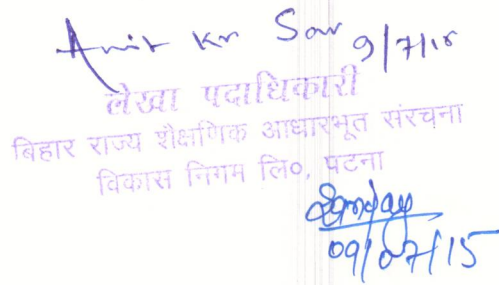 Amit Kr Sav 9/7/15
लेखा पदाधिकारी
बिहार राज्य शैक्षणिक आधारभूत संरचना
विकास निगम लि०, पटना
09/07/15